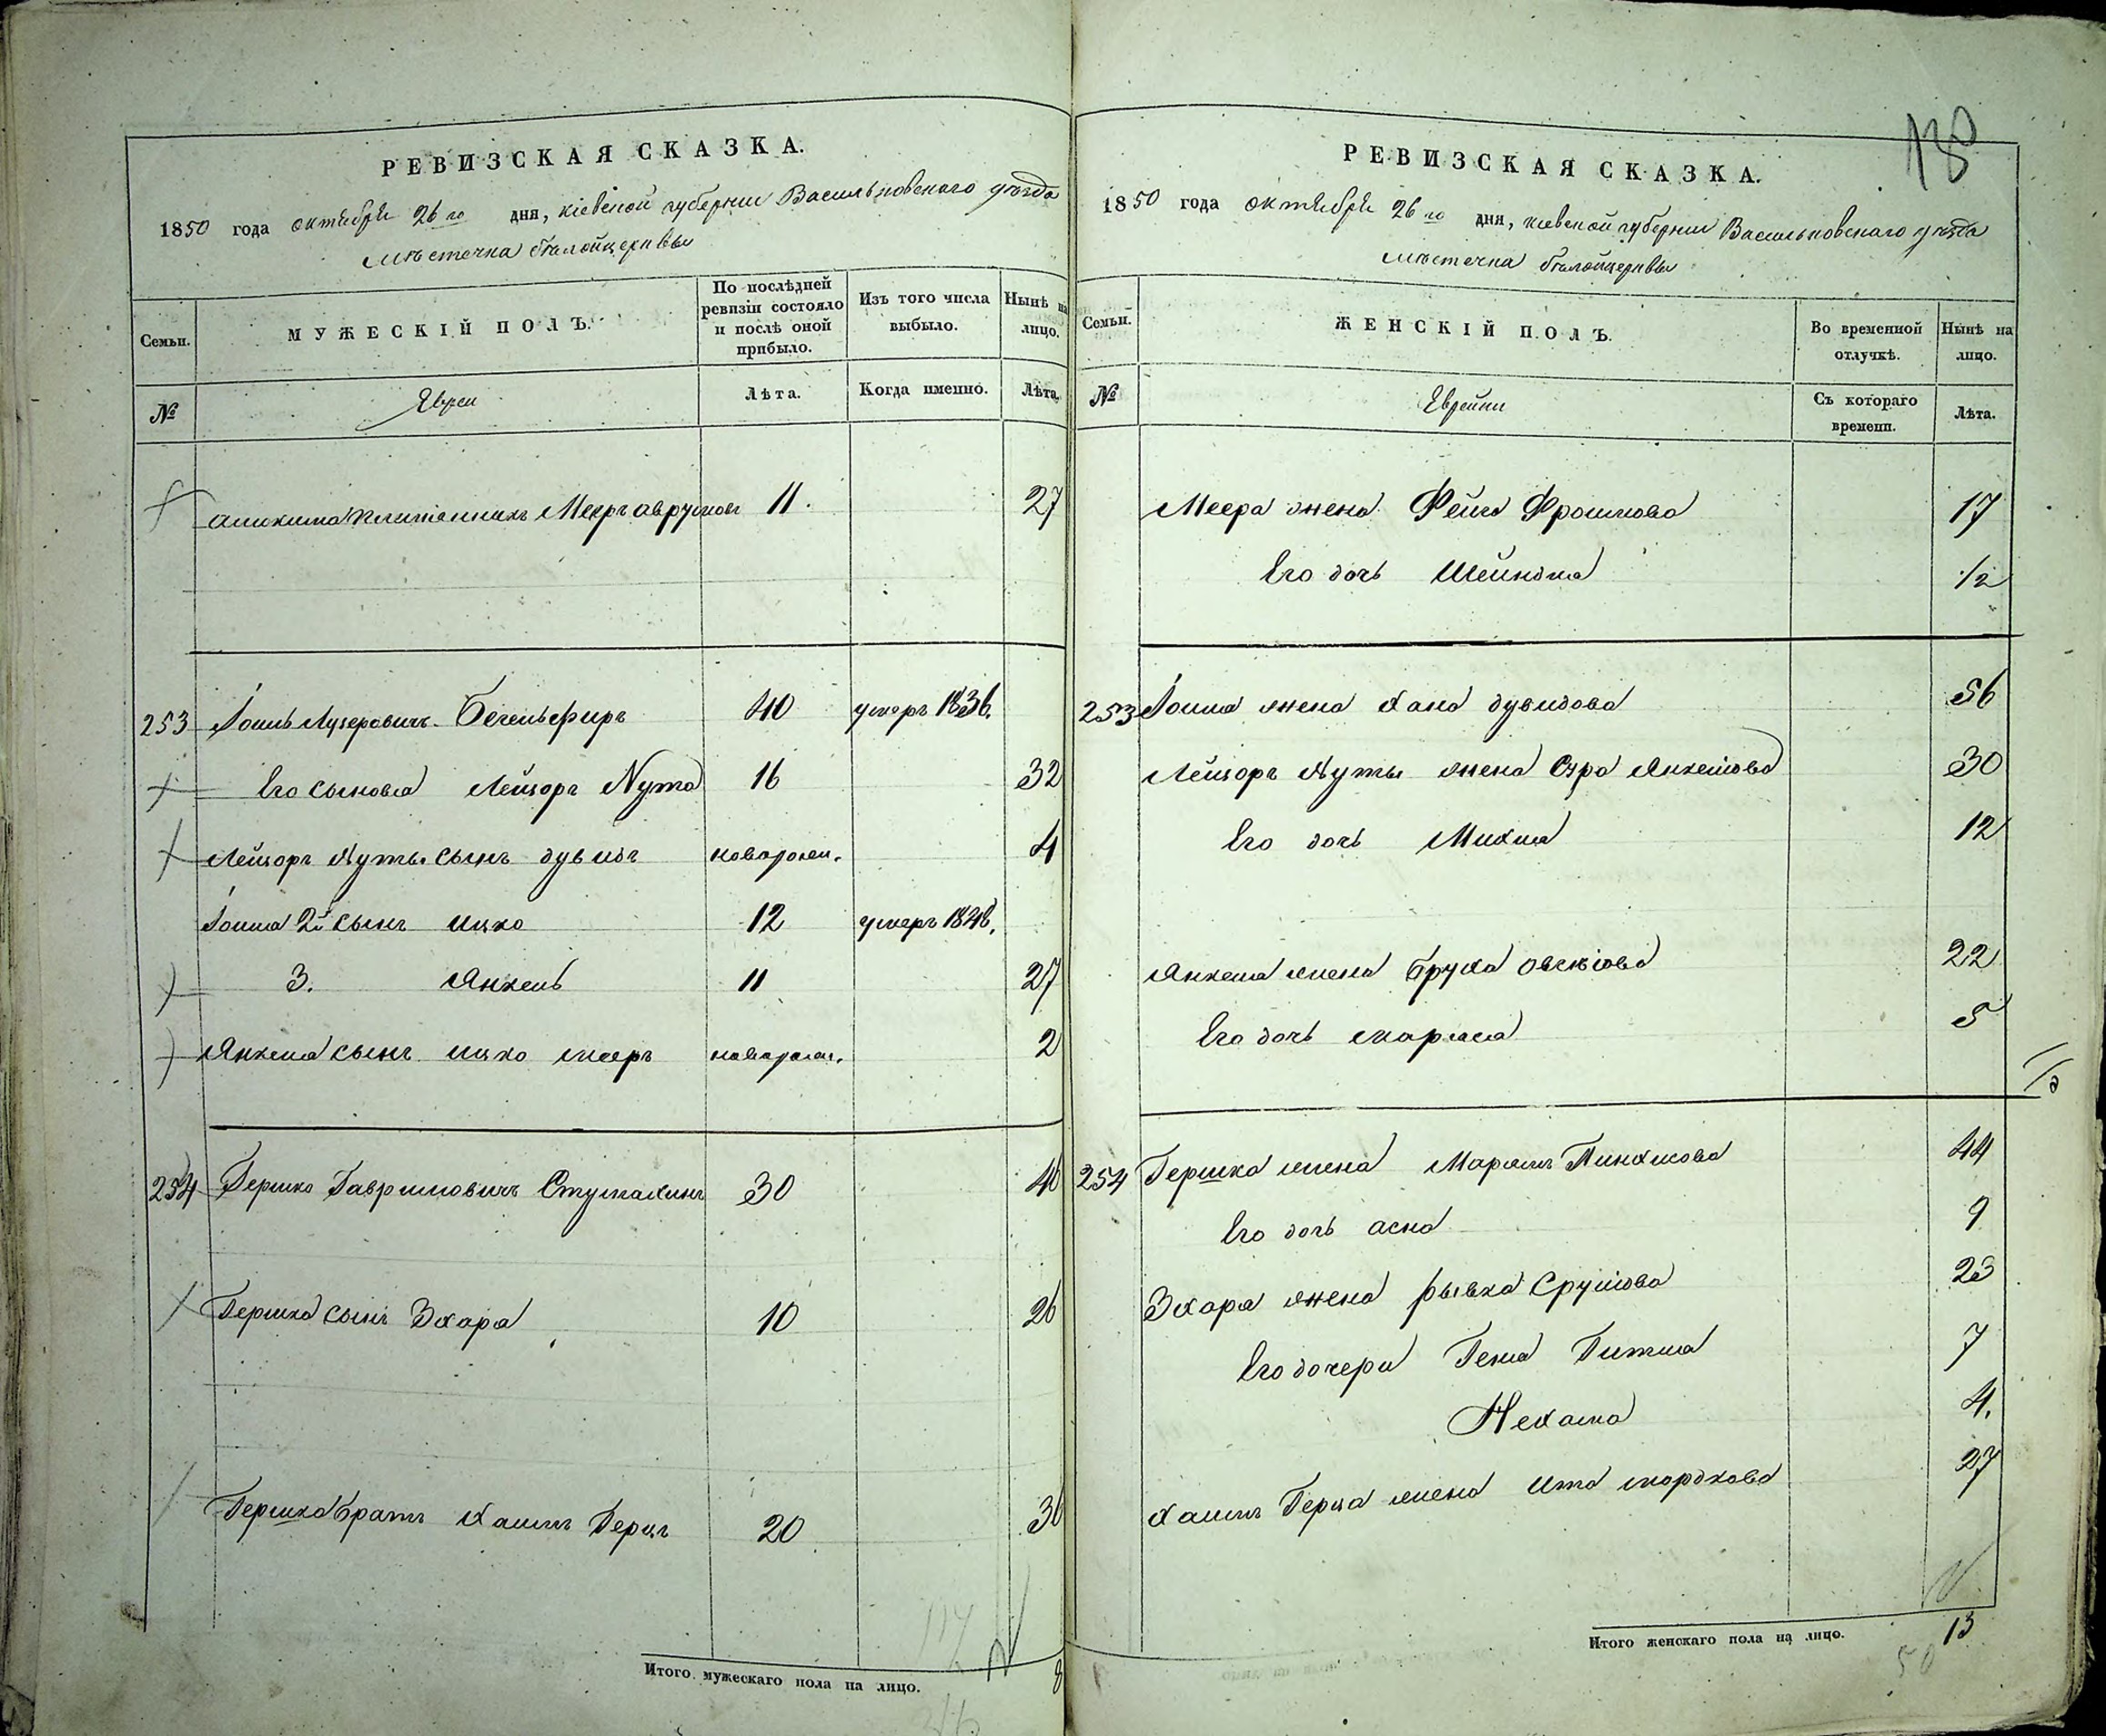 РЕВИЗСКАЯ СКАЗКА.
1850 года октября 26го дня, кіевской губерніи Васильковскаго уѣзда
мѣстечка бѣлойцеркви
Семьи. МУЖЕСКІЙ ПОЛЪ. По послѣдней ревизіи состояло и послѣ оной прибыло. Изъ того числа выбыло. Нынѣ на лицо.
№ Евреи Лѣта. Когда именно. Лѣта.
племянникъ Мееръ аврумовъ 11. 27
253 Іоиль Лузеровичъ 40 умеръ 1836.
Его сыновья Лейзоръ Нута 16 32
Лейзоръ Нуты сынъ дувидъ новорожн. 4
Іоиля 2й сынъ ицко 12 умеръ 1848.
3. Янкель 11 27
Янкеля сынъ ицко мееръ новорожн. 2
254 Гершко Гавриловичъ 30 46
Гершка сынъ Зхаря 10 26
Гершка братъ хаимъ Герцъ 20 36
Итого мужескаго пола на лицо. 8
138
РЕВИЗСКАЯ СКАЗКА.
1850 года октября 26го дня, кіевской губерніи Васильковскаго уѣзда
мѣстечка бѣлойцеркви
Семьи. ЖЕНСКІЙ ПОЛЪ. Во временной отлучкѣ. Нынѣ на лицо.
№ Еврейки Съ котораго времени. Лѣта.
Меера жена Фейга Фроимова 17
Его дочь Шейндля 1/2
253 Іоиля жена хана дувидова 56
Лейзоръ Нуты жена Сура Янкелова 30
Его дочь Михля 12
Янкеля жена бруха овсѣіова 22
Его дочь марьяся 5
254 Гершка жена Марьямъ Пинхасова 44
Его дочь асна 9
Зхаря жена рывка Срулова 23
Его дочери Геня Гитля 7
Нехама 4.
хаимъ Герца жена ита мордкова 27
Итого женскаго пола на лицо. 13
50